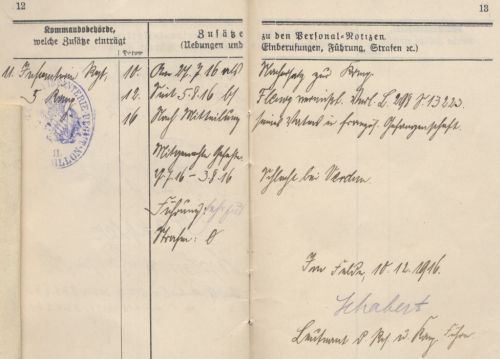 12
13
Kommandobehörde,
welche Zusätze einträgt
Zusätze
(Uebungen und
zu den Personal-Notizen.
Einberufungen, Führung, Strafen ꝛc.)
11. Infanterie Rgt.
5 Komp
10.
12.
16
Am 27.7 16 als
Nachersatz zur Komp.
Seit 5.8.16
vermißt. Verl. L.
Nach Mitteilung
seines Vaters in französ. Gefangenschaft.
Mitgemachte Gefechte
.7.16 – 3.8.16
Schlacht bei Verdun
Führung: sehr gut
Strafen: 0
Im Felde, 10.12.1916.
Schabert
Leutnant d Res. u. Komp. Führer